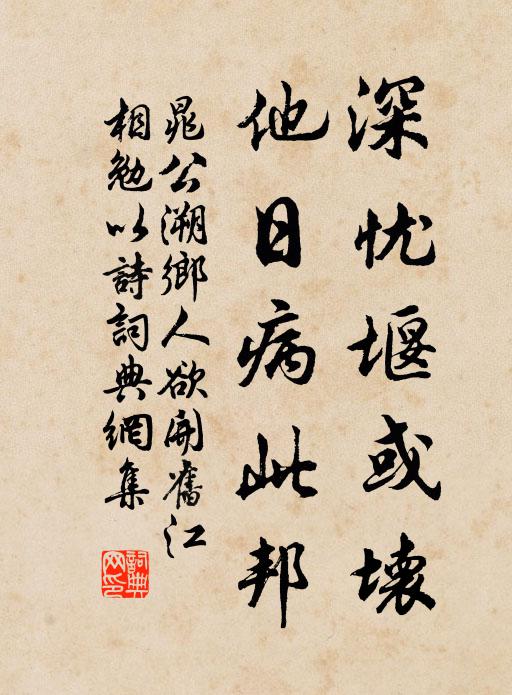 深忧堰或壊
他日病此邦
晁公溯鄉人欲開舊江
相勉以詩詞典網集
詞典网印